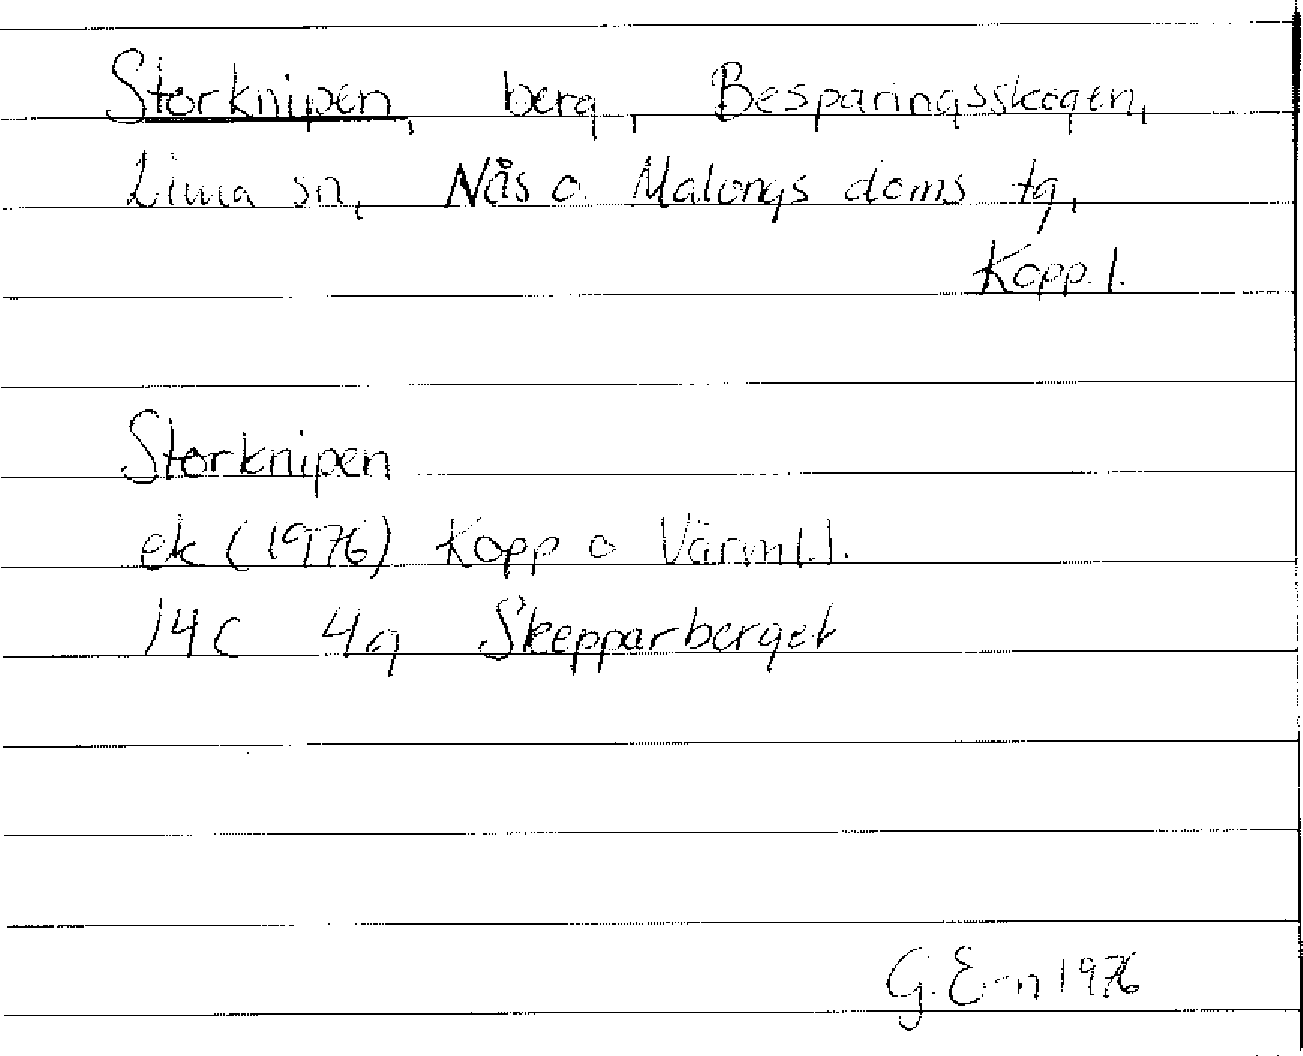 Storknipen, berg, Besparingsskogen,
Lima sn, Nås o. Malungs doms tg,
Kopp. l.
Storknipen
ek (1976) Kopp o Värml. l.
14C 4g Skepparberget
G. E-n 1976